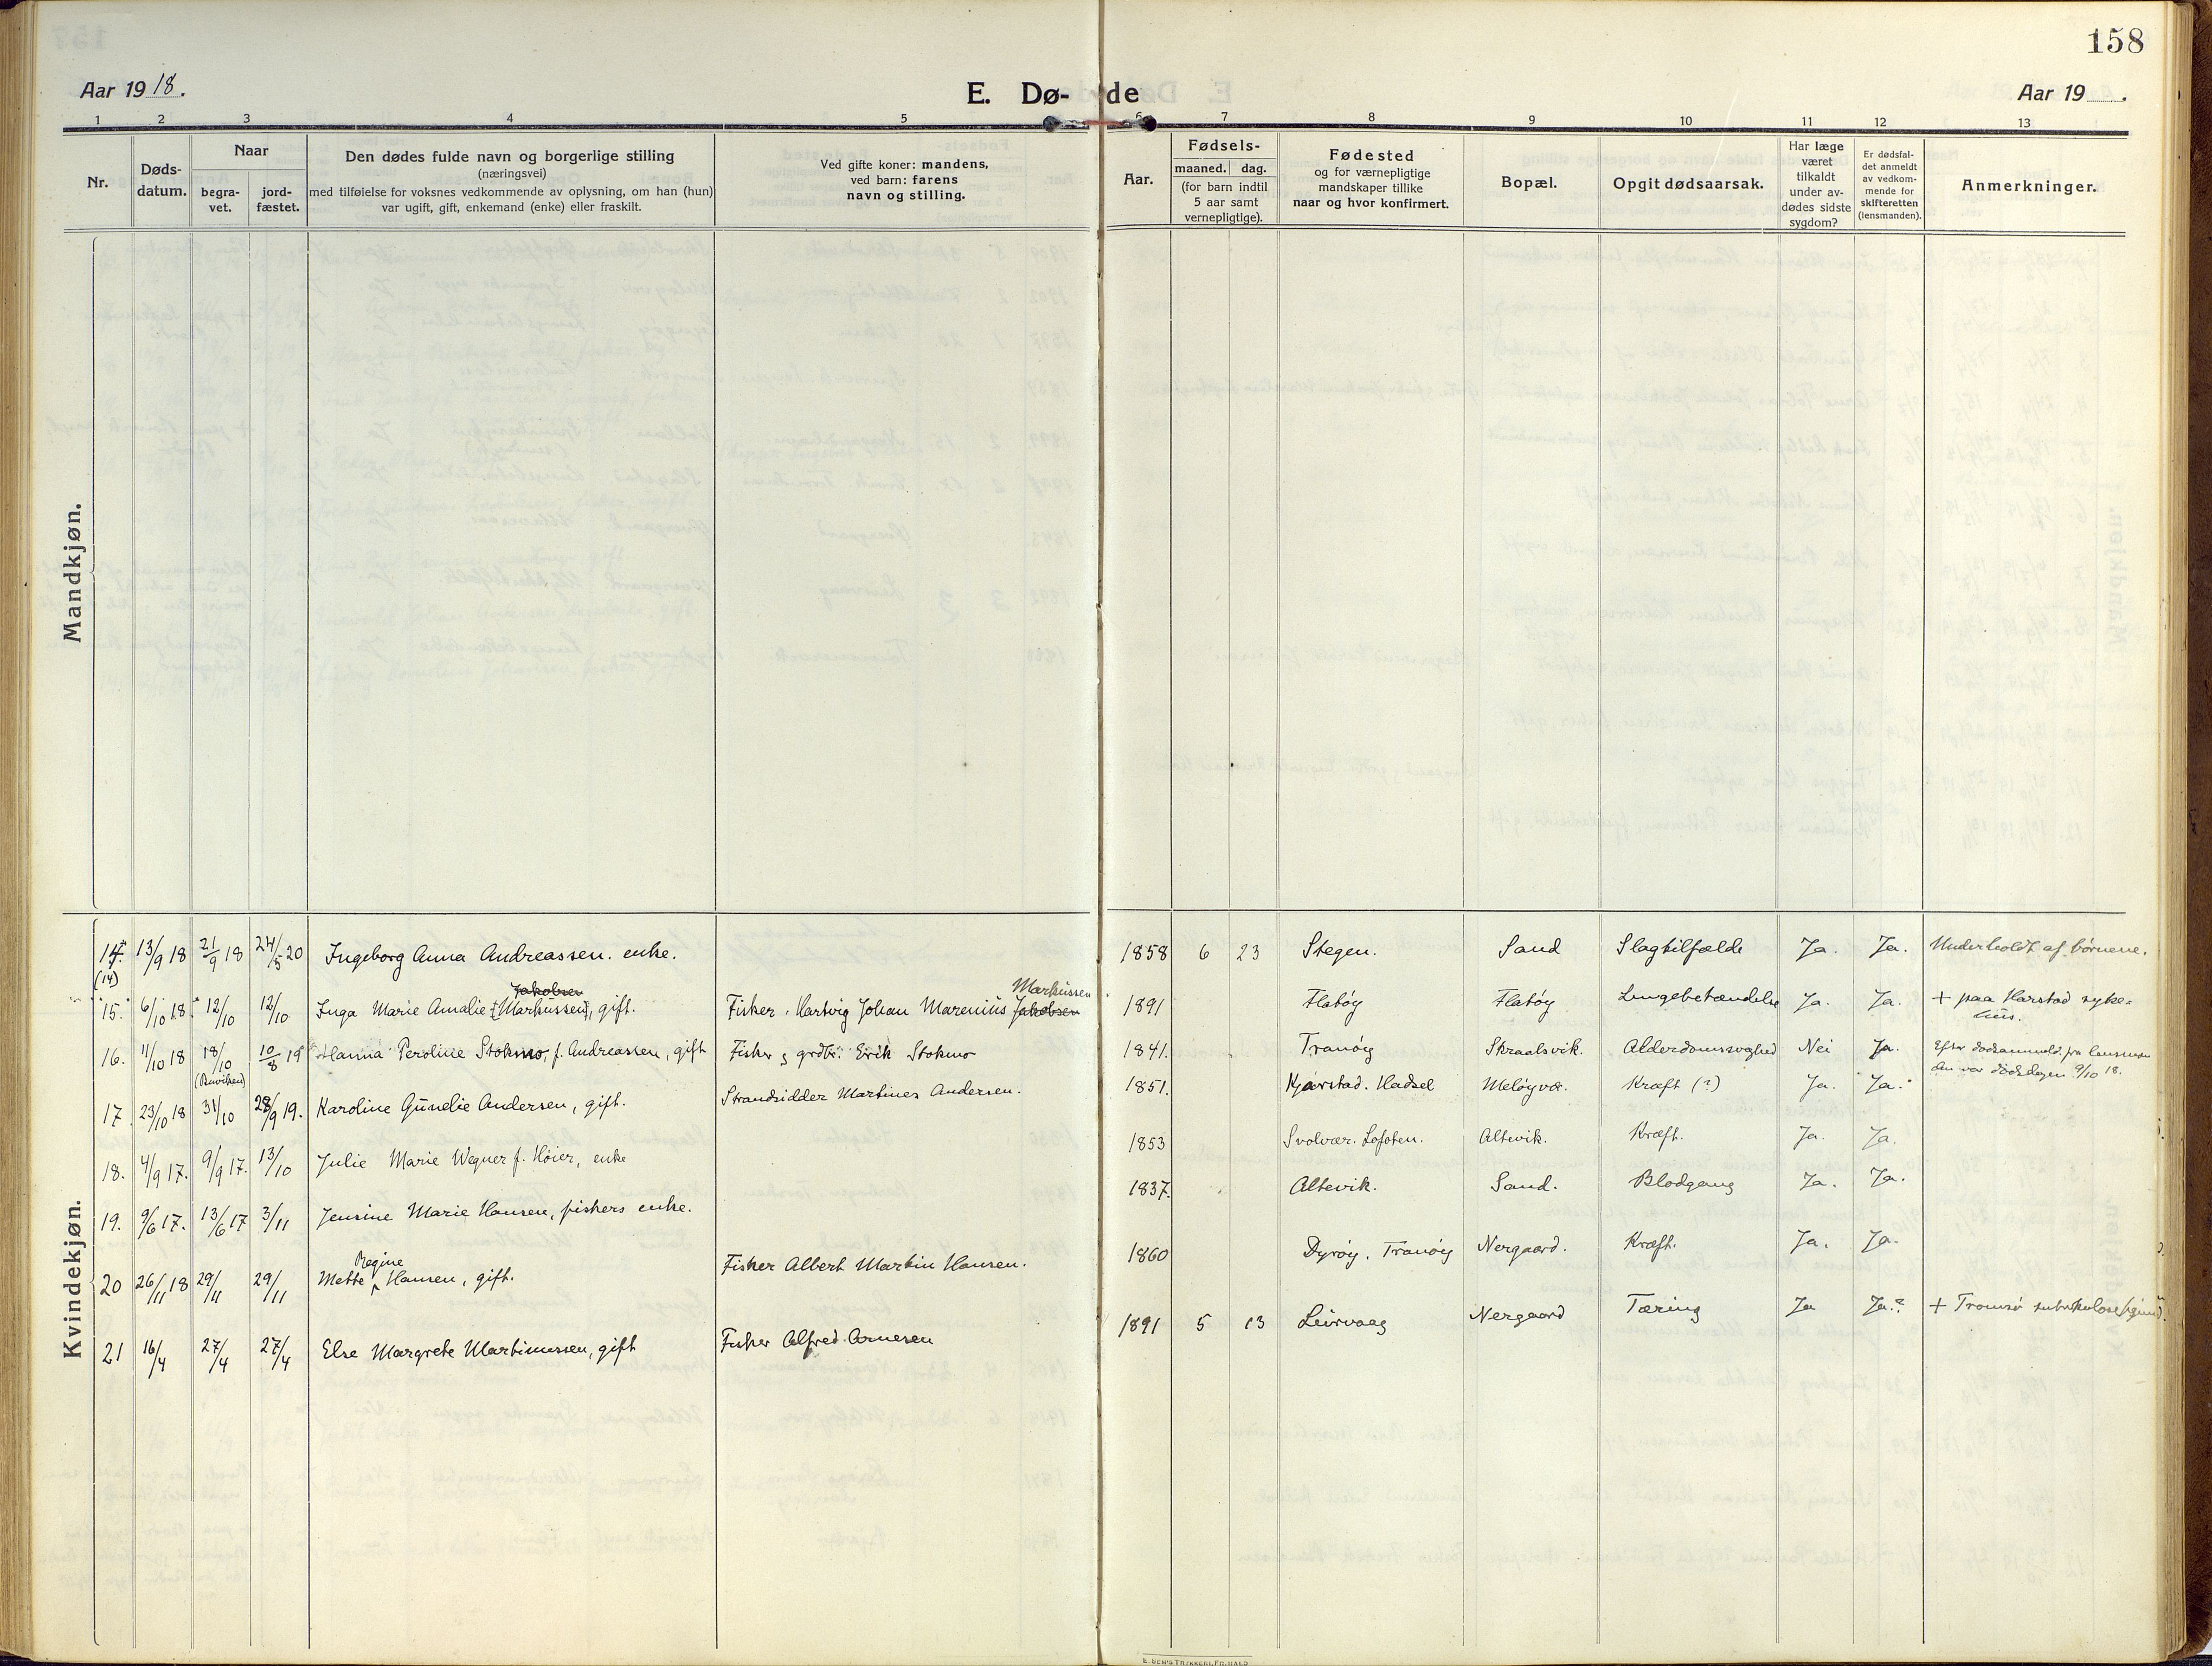 158
Aar 1918.
E. Dø-de
Aar 19 .
1 2 3 4 5 6 7 8 9 10 11 12 13
Nr.
Døds-
datum.
Naar
begra-
vet.
jord-
fæstet.
Den dødes fulde navn og borgerlige stilling
(næringsvei)
med tilføielse for voksnes vedkommende av oplysning, om han (hun)
var ugift, gift, enkemand (enke) eller fraskilt.
Ved gifte koner: mandens,
ved barn: farens
navn og stilling.
Aar.
Fødsels-
maaned. dag.
(for barn indtil
5 aar samt
vernepligtige).
Fødested
og for værnepligtige
mandskaper tillike
naar og hvor konfirmert.
Bopæl.
Opgit dødsaarsak.
Har læge
været
tilkaldt
under av-
dødes sidste
sygdom?
Er dødsfal-
det anmeldt
av vedkom-
mende for
skifteretten
(lensmanden).
Anmerkninger.
Mandkjøn.
Kvindekjøn.
14. 13/9 18 21/9 18 24/5 20 Ingeborg Anna Andreassen. enke. 1858 6 23 Stegen. Sand Slagtilfælde Ja. Ja. Underholdt af børnene.
(14)
Jakobsen Markussen
15. 6/10 18 12/10 12/10 Inga Marie Amalie [Markussen], gift. Fisker. Hartvig Johan Marenius Jakobsen 1891 Flatøy Flatøy Lungebetændelse Ja. Ja. + paa Harstad syke-
hus.
16. 11/10 18 18/10 10/8 19 Hanna Peroline Stokmo, f. Andreassen, gift Fisker og grdbr. Erik Stokmo 1841. Tranøy Skraalsvik. Alderdomssvaghed Nei Ja. Efter dødsanmeld. fra lensmann
den var dødsdagen 9/10 18.
17 23/10 18 31/10 28/9 19. Karoline Gunelie Andersen, gift. Strandsidder Martines Andersen. 1851. Kjørstad. Hadsel Meløyvær. Kræft (?) Ja. Ja.
18. 4/9 17. 9/9 17. 13/10 Julie Marie Wegner f. Høier, enke 1853 Svolvær. Lofoten. Altevik. Kræft. Ja. Ja.
19. 9/6 17. 13/6 17 3/11 Jensine Marie Hansen, fiskers enke. 1837. Altevik. Sand. Blodgang Ja. Ja.
Regine
20 26/11 18 29/11 29/11 Mette Hansen, gift. Fisker Albert Martin Hansen. 1860 Dyrøy. Tranøy Nergaard. Kræft. Ja. Ja.
21 16/4 27/4 27/4 Else Margrete Martinussen, gift Fisker Alfred Arnesen 1891 5 13 Leirvaag Nergaard Tæring Ja Ja.? + Tromsø